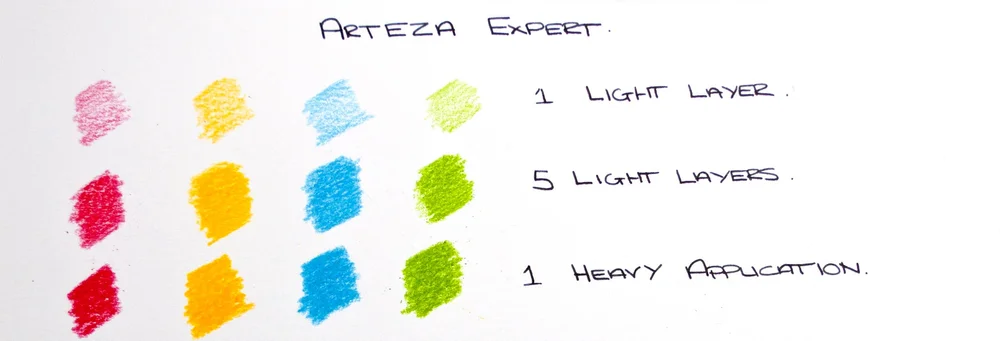 ARTEZA EXPERT.
1 LIGHT LAYER.
5 LIGHT LAYERS.
1 HEAVY APPLICATION.